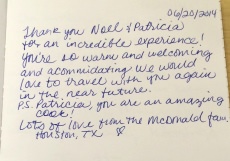 06/20/2014
Thank you Noel & Patricia
for an incredible experience!
You're so warm and welcoming
and accommidating. We would
love to travel with you again
in the near future.
P.S. Patricia, you are an amazing
cook!
Lots of love from the McDonald fam.
Houston, TX ♡